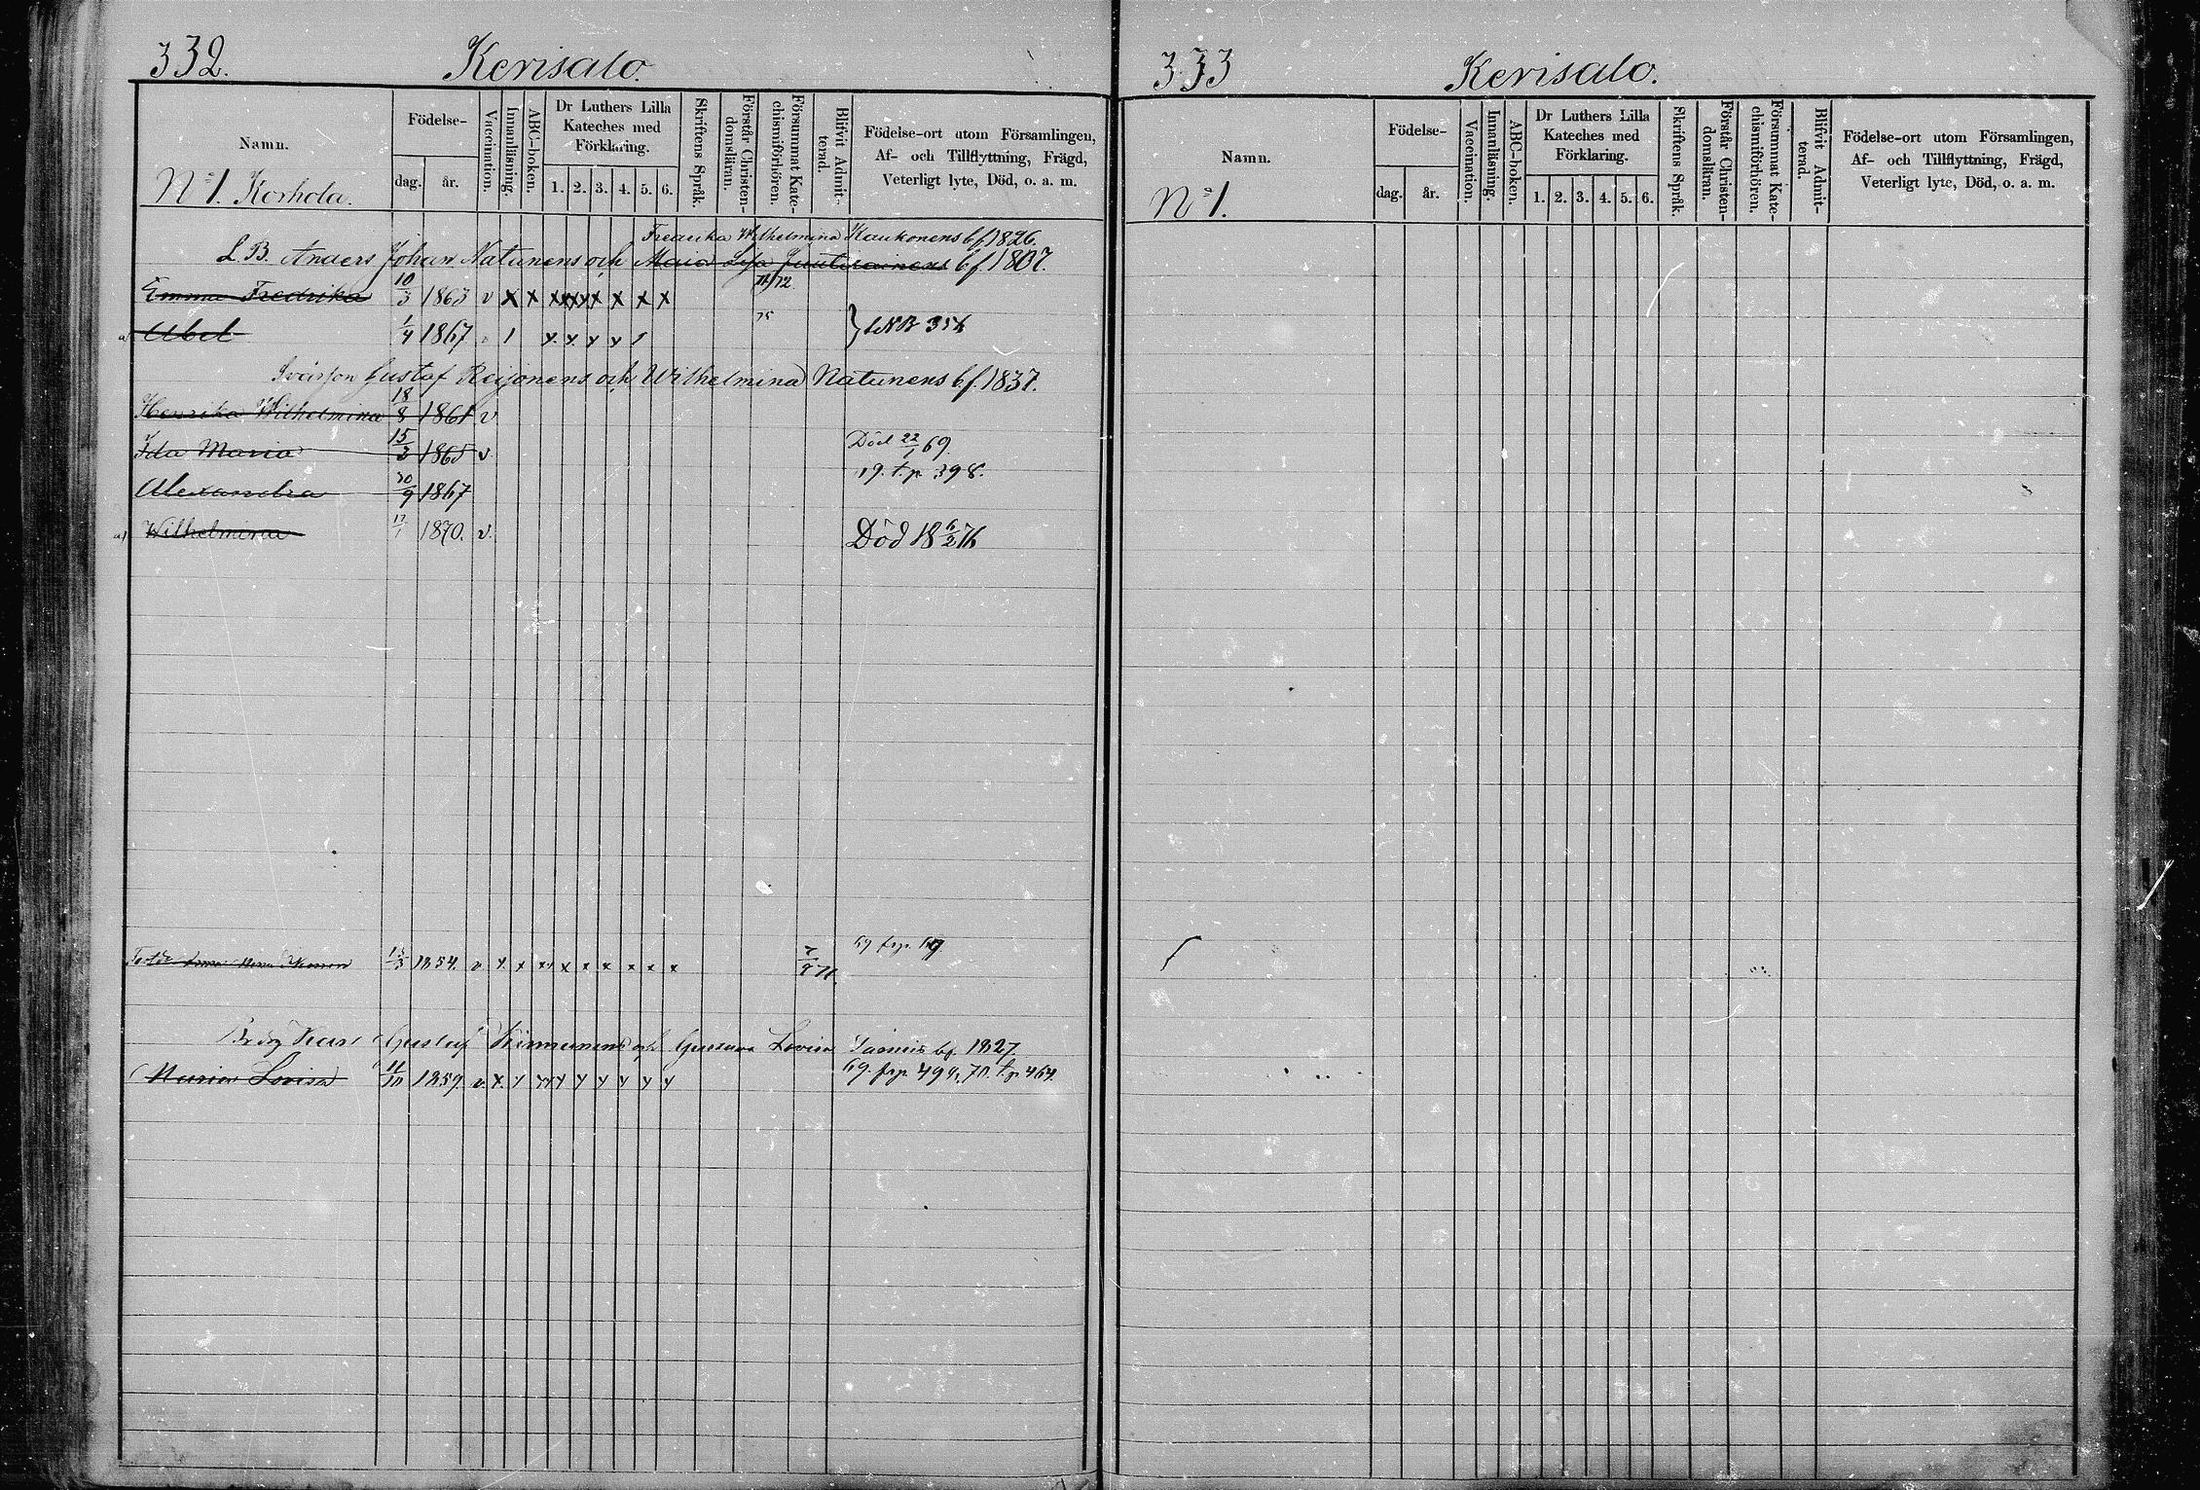 332.
Kerisalo.
Namn.
Födelse-
dag. år.
Vaccination.
Innanläsning.
ABC-boken.
Dr Luthers Lilla Kateches med Förklaring.
1. 2. 3. 4. 5. 6.
Skriftens Språk.
Förstår Christen-domsläran.
Försummat Kate-chismiförhören.
Blifvit Admit-terad.
Födelse-ort utom Församlingen, Af- och Tillflyttning, Frägd, Veterligt lyte, Död, o. a. m.
No 1. Korhola.
Fredrika Wilhelmina Kaukonens bf. 1826.
L. B. Anders Johan Natunens och Maria Lisa bf. 1807.
Emma Fredrika 10/3 1863 v x x x x x x x x x 71/72
a) Abel 1/4 1867 1 x x x x 1 75 } 356
Svärson Gustaf Reijonens och Wilhelmina Natunens bf. 1837.
Henrika Wilhelmina 18/8 1861 v
Ida Maria 15/3 1865 v Död 22/1 69.
t.p. 398.
Alexandra 20/9 1867
a) Wilhelmina 1870. v. Död 18 6/2 76
69 frp.
Anna 1854. v x x x x x x x x x 71.
Karl Gustaf Kinnunens och Gustava Lovisa bf. 1827.
Maria Lovisa 11/10 1859. v. x y y y y y y y y 69 frp. 494, 70. t.p. 464.
333
Kerisalo.
Namn.
Födelse-
dag. år.
Vaccination.
Innanläsning.
ABC-boken.
Dr Luthers Lilla Kateches med Förklaring.
1. 2. 3. 4. 5. 6.
Skriftens Språk.
Förstår Christen-domsläran.
Försummat Kate-chismiförhören.
Blifvit Admit-terad.
Födelse-ort utom Församlingen, Af- och Tillflyttning, Frägd, Veterligt lyte, Död, o. a. m.
No 1.